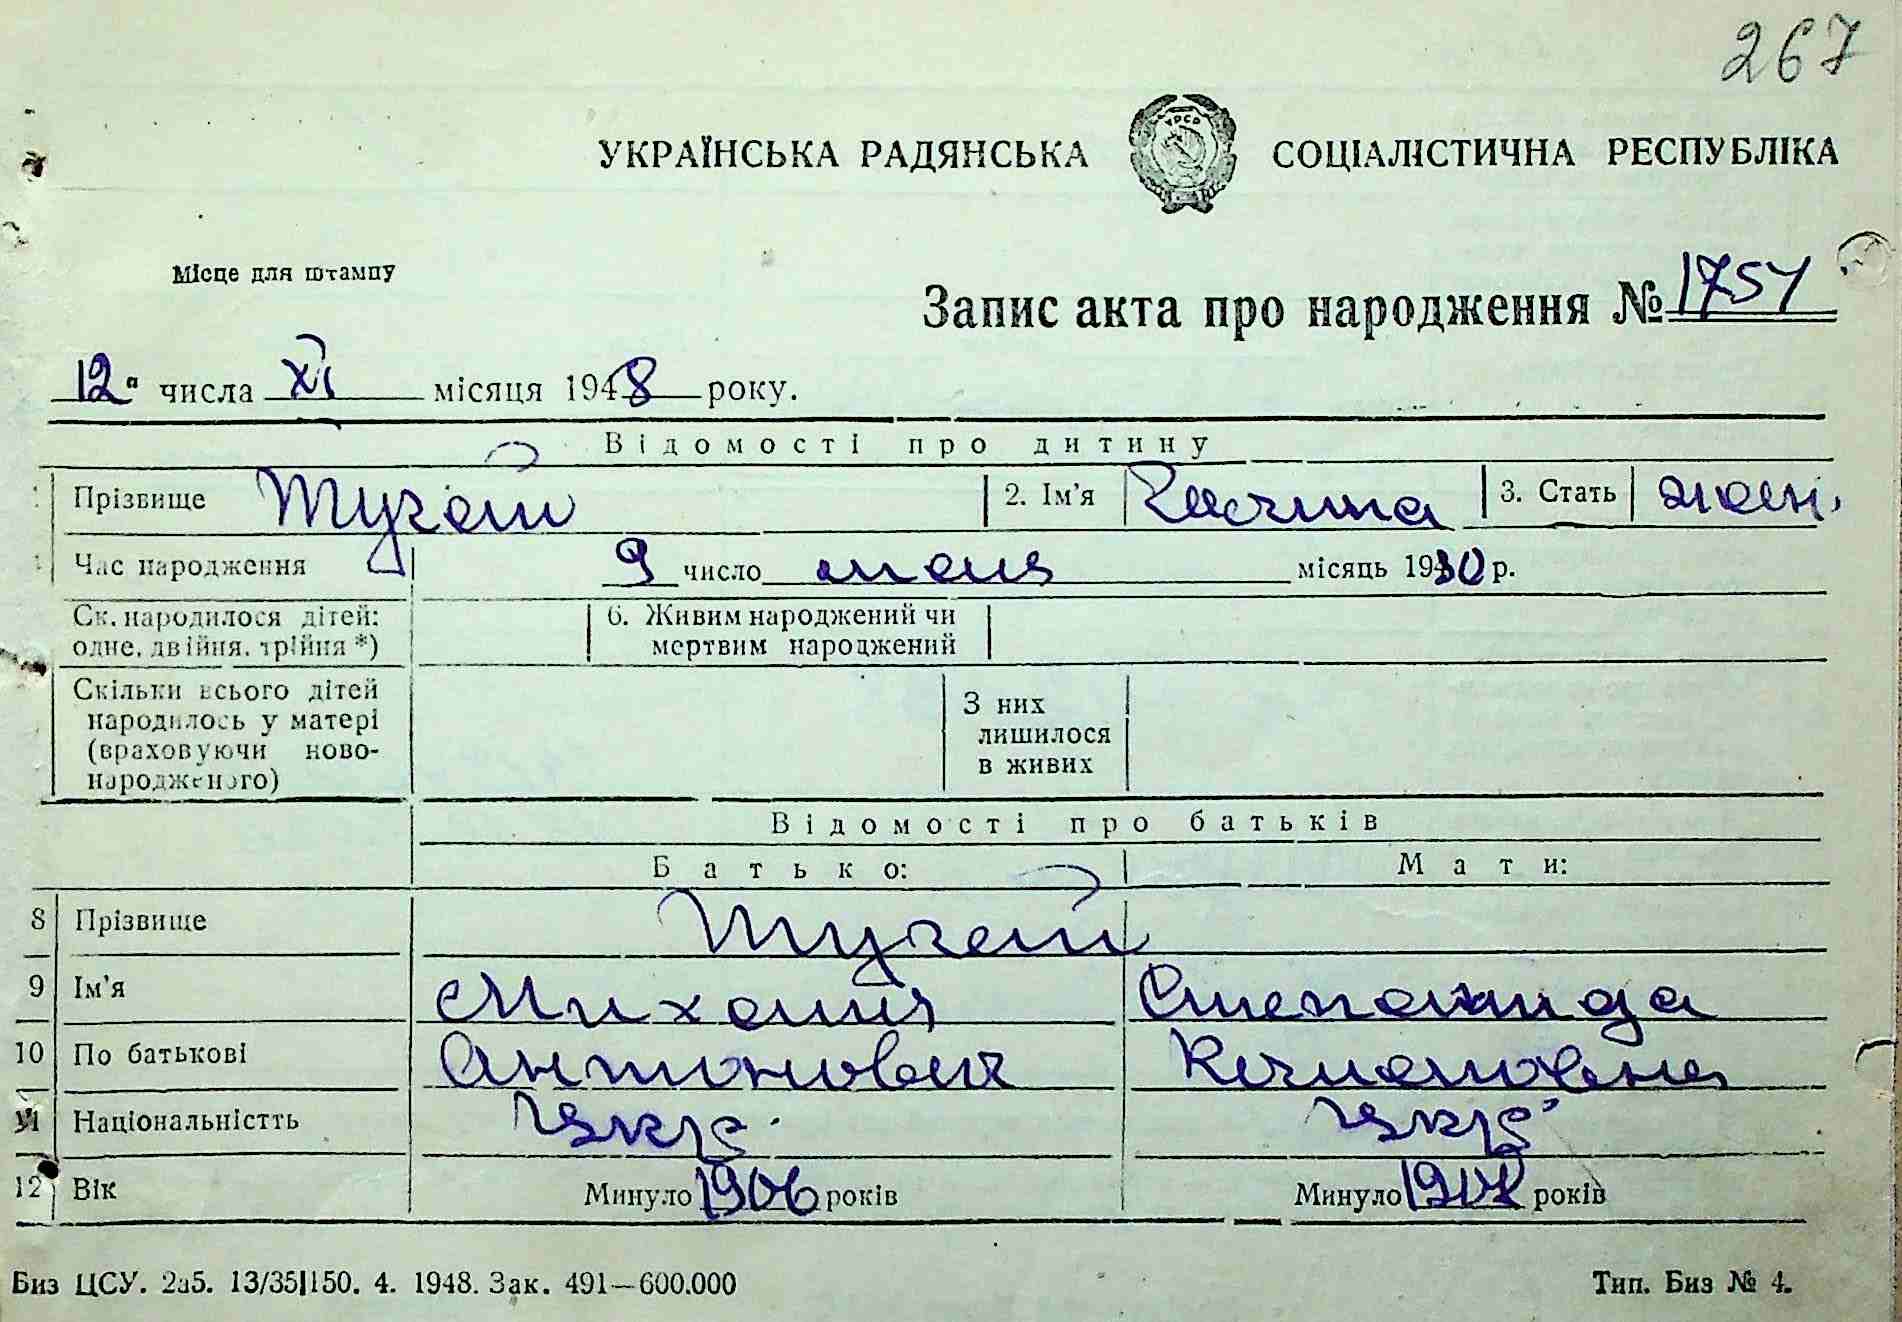 267
УКРАЇНСЬКА РАДЯНСЬКА СОЦІАЛІСТИЧНА РЕСПУБЛІКА
УРСР
Місце для штампу
Запис акта про народження № 1757
12 числа XI місяця 1948 року.
Відомості про дитину
Прізвище Тугай 2. Ім'я Галина 3. Стать жен.
Час народження 9 число мая місяць 1930 р.
Ск. народилося дітей: одне, двійня, трійня *) 6. Живим народжений чи
мертвим народжений
Скільки всього дітей
народилось у матері
(враховуючи ново-
народженого)
З них
лишилося
в живих
Відомості про батьків
Батько: Мати:
8 Прізвище Тугай
9 Ім'я Михаил Степанида
10 По батькові Антонович
11 Національністть укр. укр.
12 Вік Минуло 1906 років Минуло років
Биз ЦСУ. 2а5. 13/35|150. 4. 1948. Зак. 491—600.000 Тип. Биз № 4.